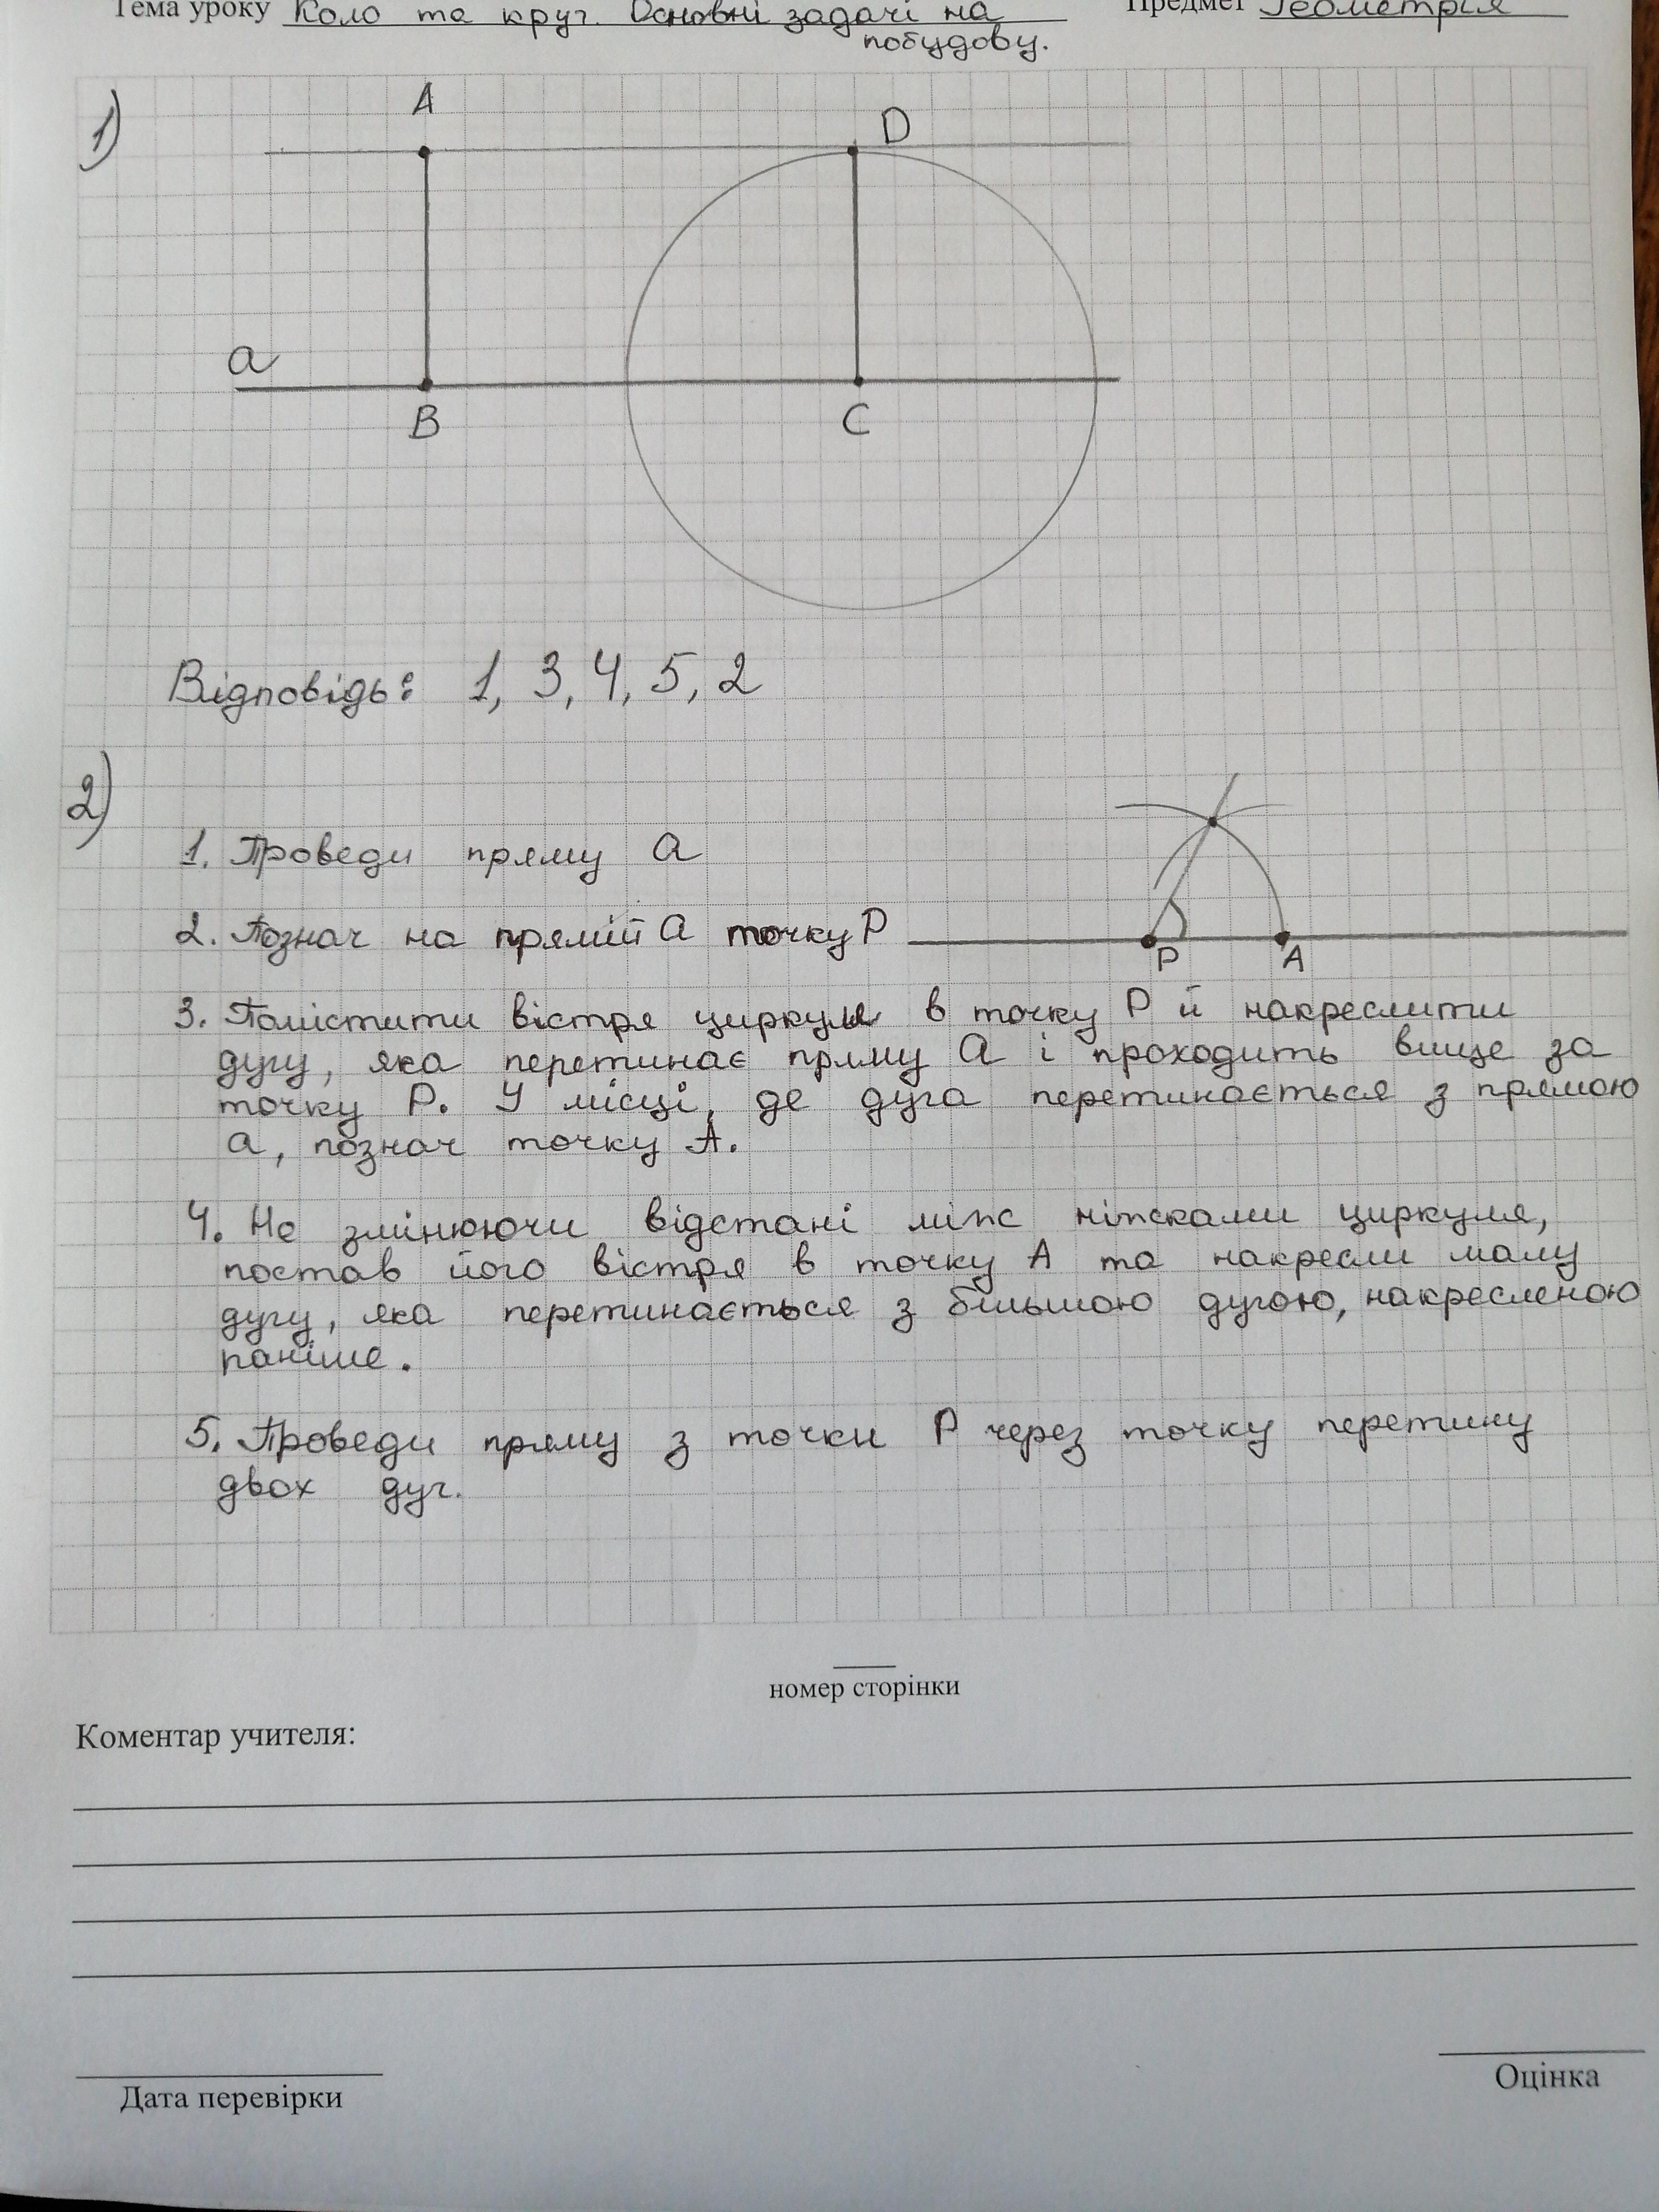 Тема уроку Коло та круг. Основні задачі на Предмет Геометрія
побудову.
1)
A
D
a
B
C
Відповідь: 1, 3, 4, 5, 2
2)
1. Проведи пряму a
2. Познач на прямій a точку P
P A
3. Помістити вістря циркуля в точку P й накреслити
дугу, яка перетинає пряму a і проходить вище за
точку P. У місці, де дуга перетинається з прямою
a, познач точку A.
4. Не змінюючи відстані між ніжками циркуля,
постав його вістря в точку A та накресли малу
дугу, яка перетинається з більшою дугою, накресленою
раніше.
5. Проведи пряму з точки P через точку перетину
двох дуг.
номер сторінки
Коментар учителя:
Дата перевірки
Оцінка